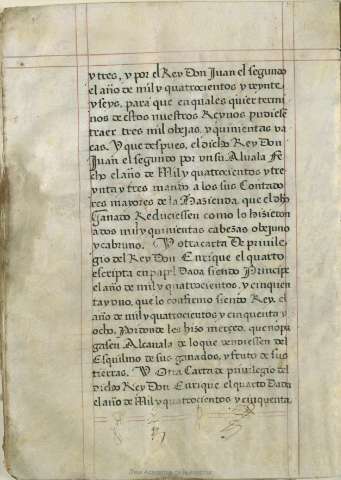 y tres, y por el Rey Don Juan el segundo
el año de mil y quatrocientos y veynte
y seys, para que en quales quier termi
nos de estos nuestros Reynos pudiese
traer tres mil obejas, y quinientas va
cas. Y que despues, el dicho Rey Don
Juan el segundo por un su Aluala Fe
cho el año de Mil y quatrocientos y tre
ynta y tres mando a los sus Contado
res mayores de la Hazienda, que el dho
Ganado Reduciessen como lo hisieron
a dos mil y quinientas cabezas obejuno
y cabruno. Y otra carta De privile
gio del Rey Don Enrique el quarto
escripta en papel Dada siendo Principe
el año de mil y quatrocientos, y cinquen
ta y uno, que lo confirmo siendo Rey, el
año de mil y quatrocientos y cinquenta y
ocho, Por donde les hiso merced, que no pa
gasen Alcauala de lo que vendiessen del
Esquilmo de sus ganados, y fruto de sus
tierras. Y Otra Carta de privilegio del
dicho Rey Don Enrique el quarto Dada
el año de Mil y quatrocientos y cinquenta,